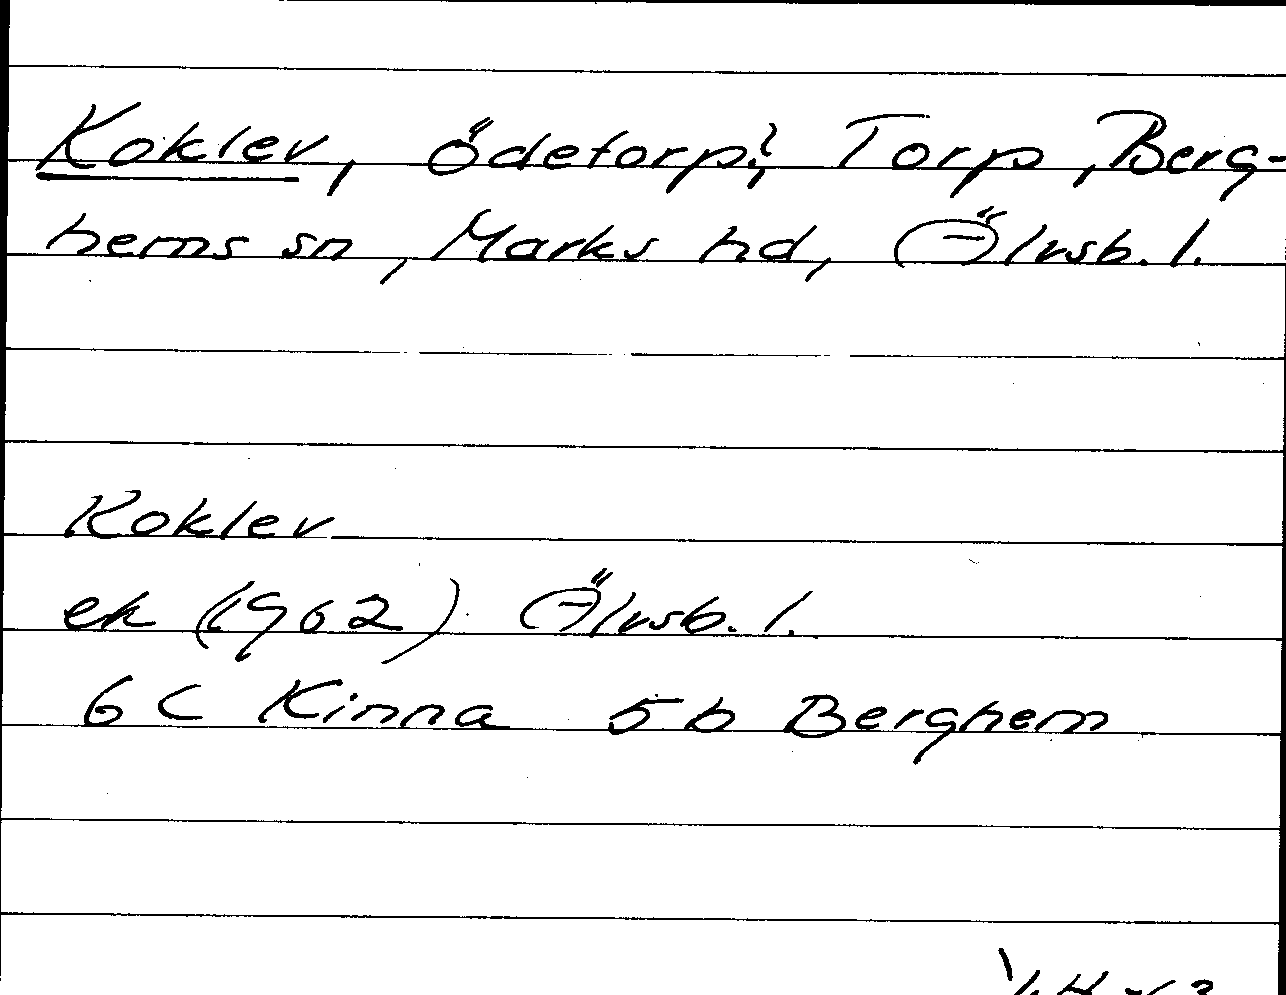 Koklev, ödetorp?, Torp, Berg-
hems sn, Marks hd, Älvsb. l.
Koklev
ek (1962) Älvsb. l.
6 C Kinna 5 b Berghem